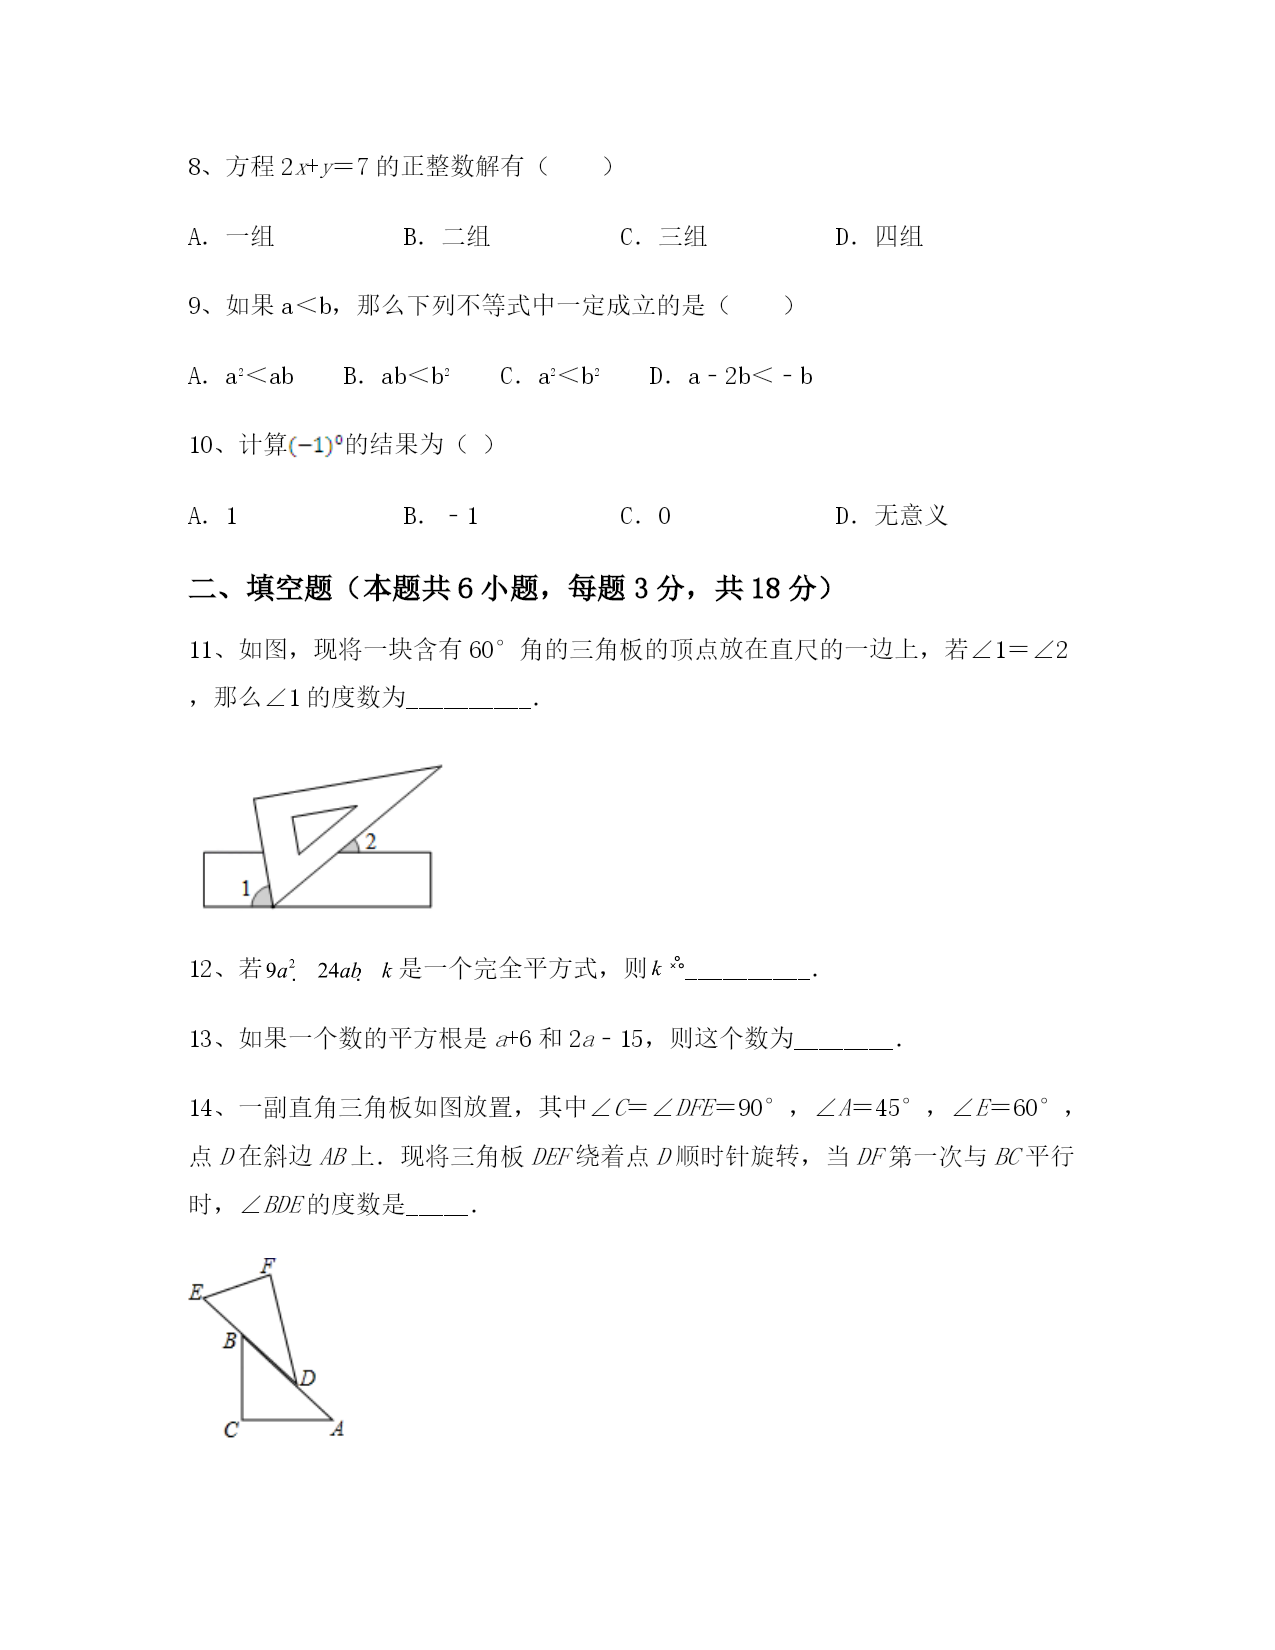 8、方程 2x+y＝7 的正整数解有（　　）
A．一组　B．二组　C．三组　D．四组
9、如果 a＜b，那么下列不等式中一定成立的是（　　）
A．a²＜ab　B．ab＜b²　C．a²＜b²　D．a﹣2b＜﹣b
10、计算(−1)⁰的结果为（ ）
A．1　B．﹣1　C．0　D．无意义
二、填空题（本题共 6 小题，每题 3 分，共 18 分）
11、如图，现将一块含有 60°角的三角板的顶点放在直尺的一边上，若∠1＝∠2
，那么∠1 的度数为__________．
2
1
12、若 9a² 24ab k 是一个完全平方式，则 k __________．
13、如果一个数的平方根是 a+6 和 2a﹣15，则这个数为________．
14、一副直角三角板如图放置，其中∠C＝∠DFE＝90°，∠A＝45°，∠E＝60°，
点 D 在斜边 AB 上．现将三角板 DEF 绕着点 D 顺时针旋转，当 DF 第一次与 BC 平行
时，∠BDE 的度数是_____．
F
E
B
D
C A